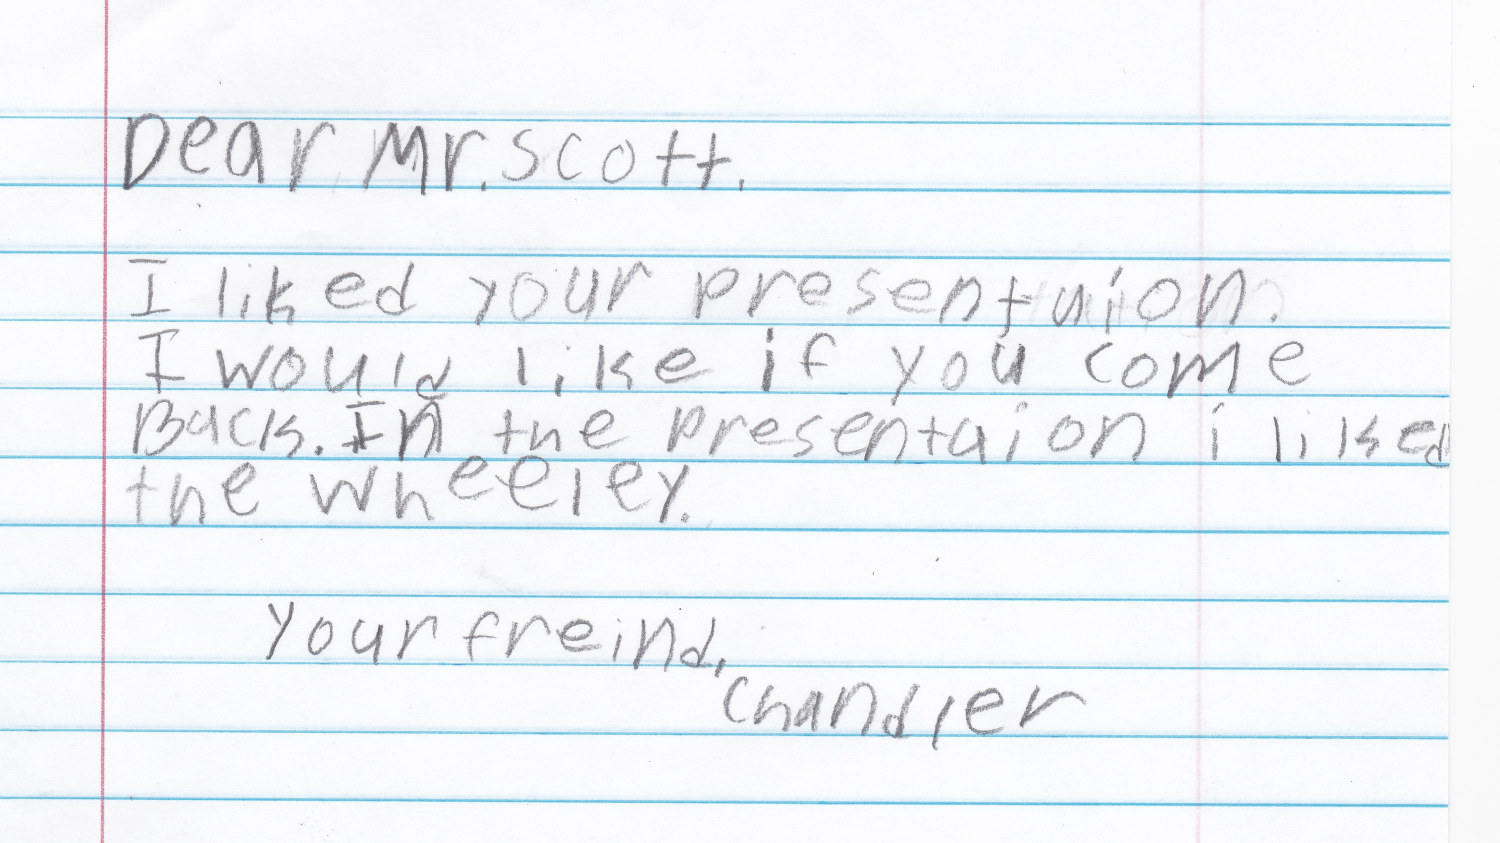 Dear Mr. Scott.
I liked your presentaion.
I would like if you come
Back. In the presentaion i liked
the wheeley.
Your freind,
Chandler